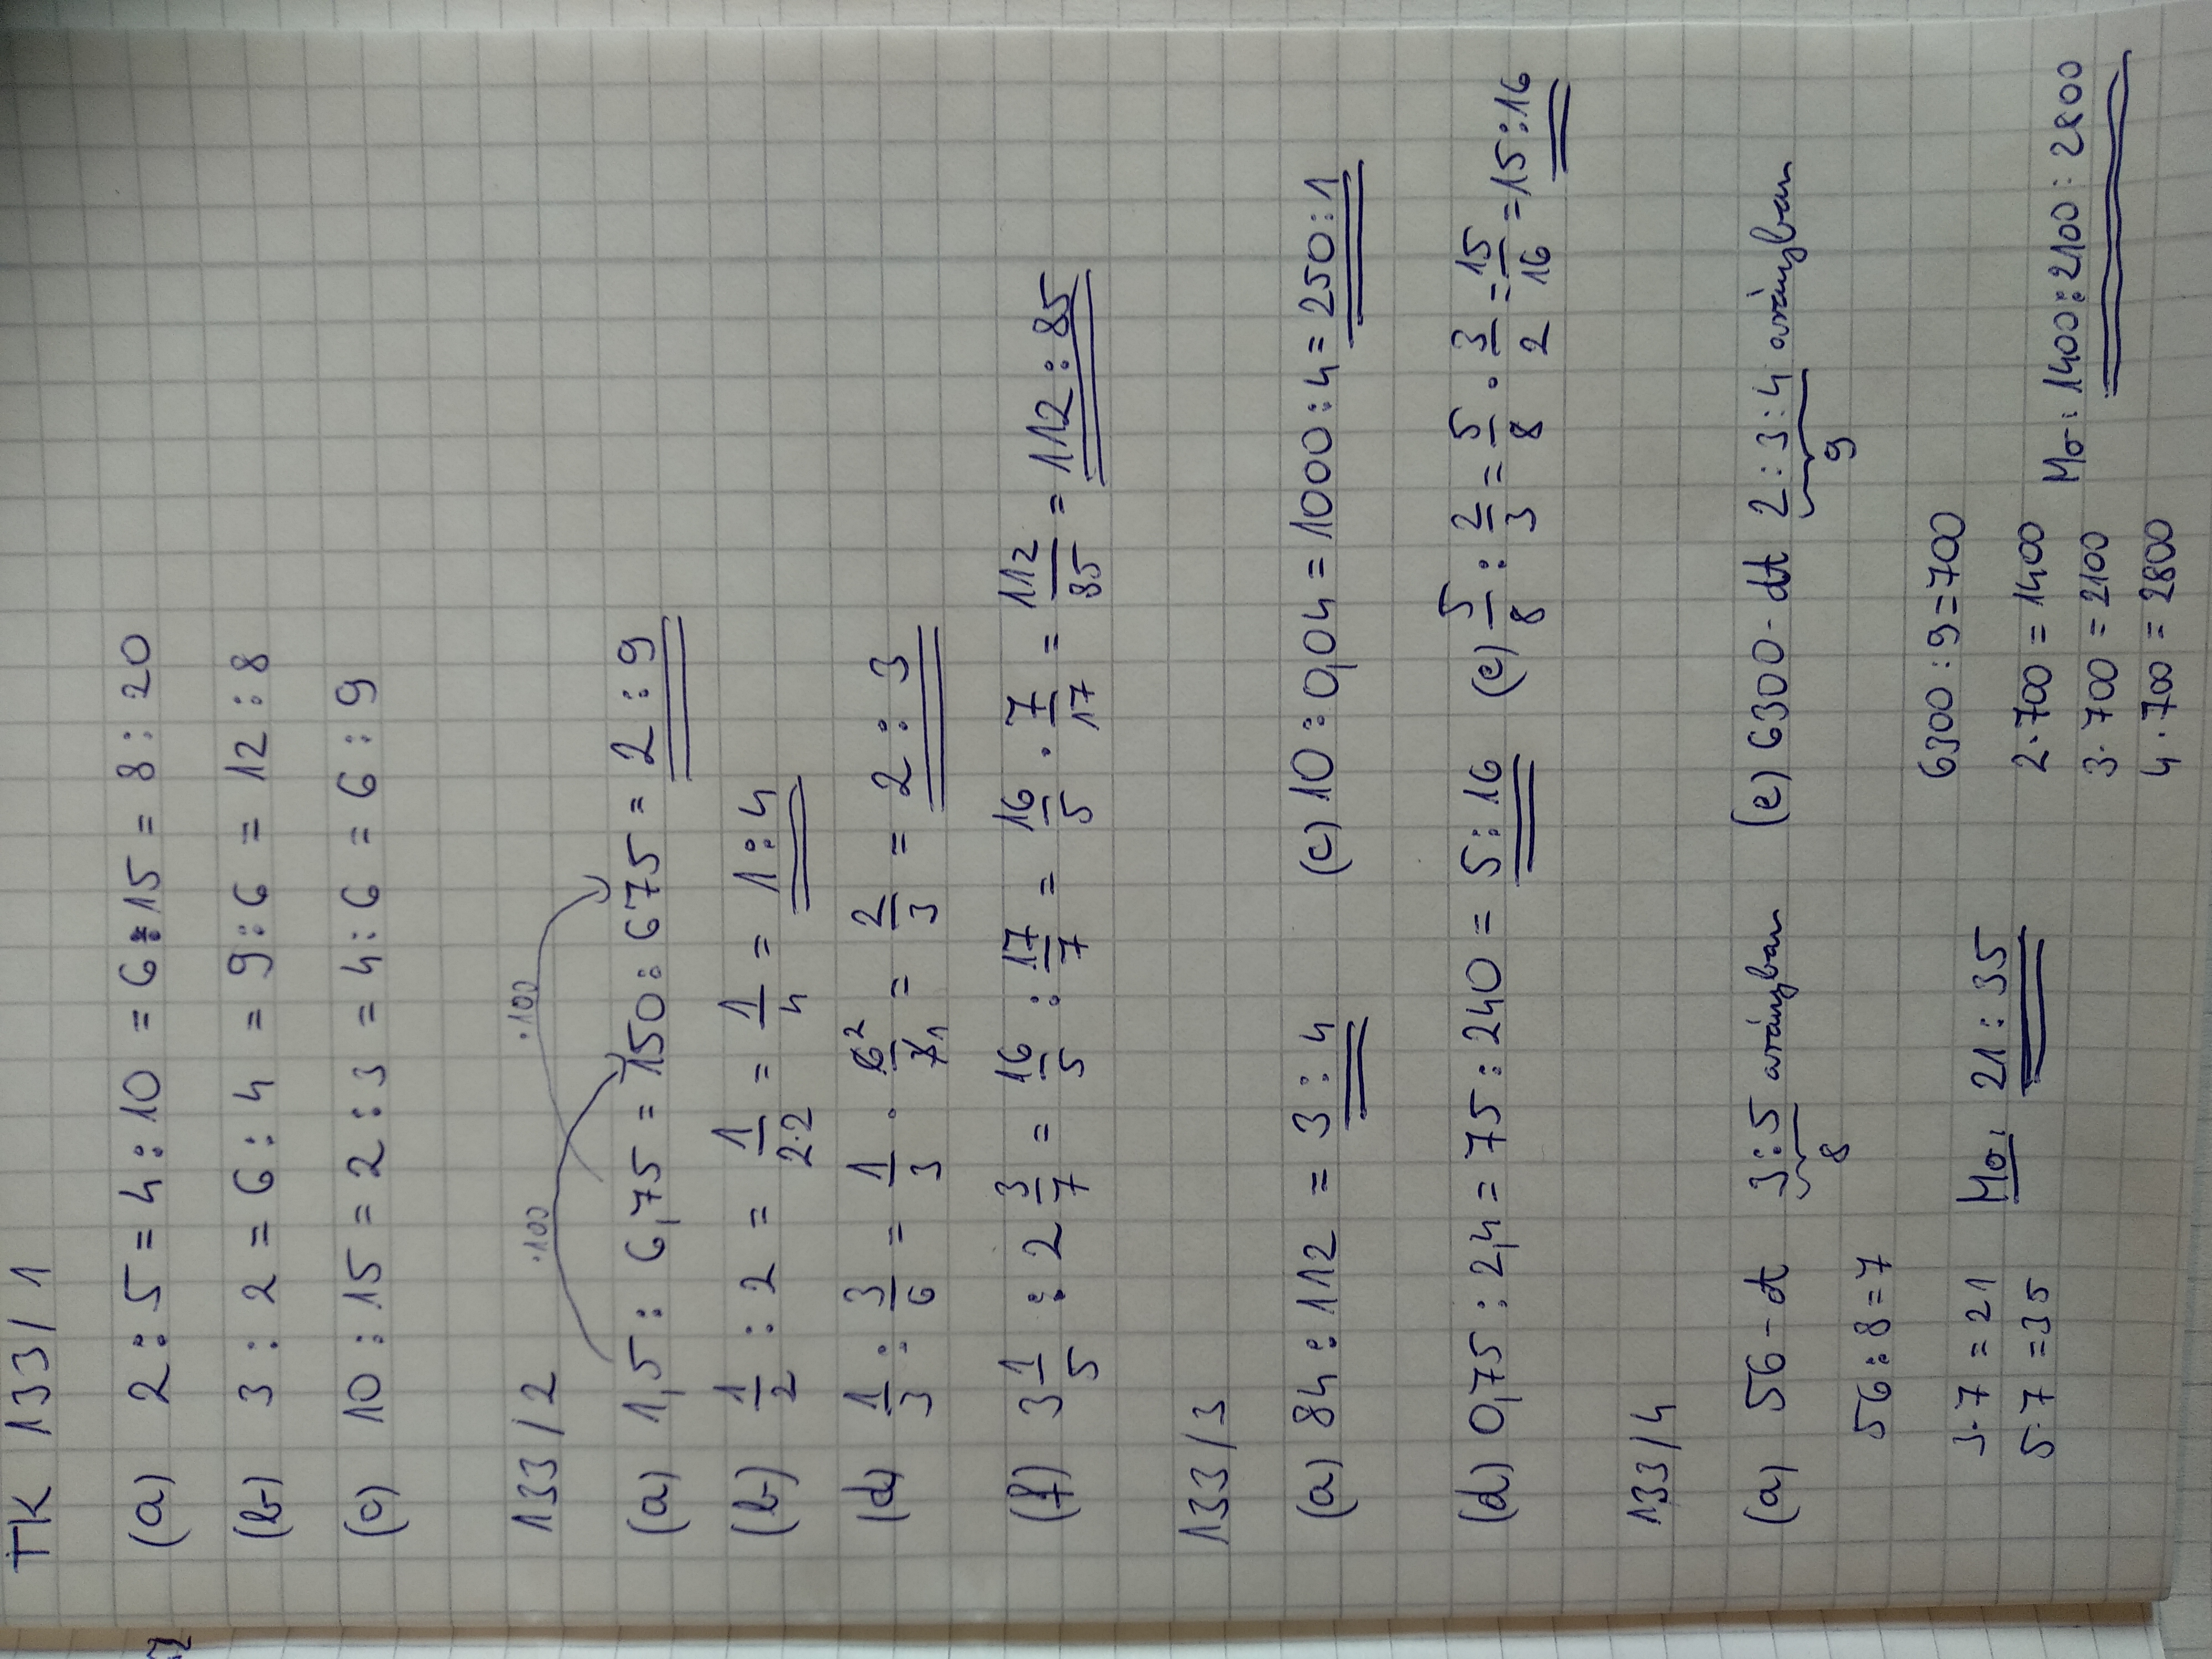 TK 133/1
(a) 2:5 = 4:10 = 6:15 = 8:20
(b) 3:2 = 6:4 = 9:6 = 12:8
(c) 10:15 = 2:3 = 4:6 = 6:9
133/2
·100 ·100
(a) 1,5 : 6,75 = 150 : 675 = 2:9
(b) 1/2 : 2 = 1/2·2 = 1/4 = 1:4
(d) 1/3 : 3/6 = 1/3 · 6²/3₁ = 2/3 = 2:3
(f) 3 1/5 : 2 3/7 = 16/5 : 17/7 = 16/5 · 7/17 = 112/85 = 112:85
133/3
(a) 84:112 = 3:4 (c) 10:0,04 = 1000:4 = 250:1
(d) 0,75 : 2,4 = 75:240 = 5:16 (e) 5/8 : 2/3 = 5/8 · 3/2 = 15/16 = 15:16
133/4
(a) 56-dt 3:5 arányban (e) 6300-dt 2:3:4 arányban
8 9
56:8=7 6300:9=700
3·7=21 Mo. 21:35 2·700=1400 Mo: 1400:2100:2800
5·7=35 3·700=2100
4·700=2800